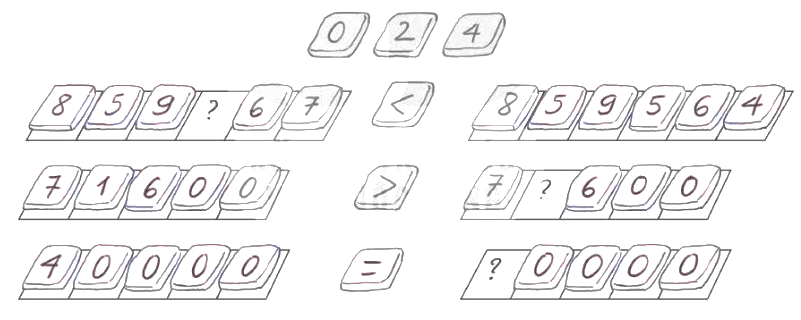 0 2 4
859?67 < 859564
71600 > 7?600
40000 = ?0000